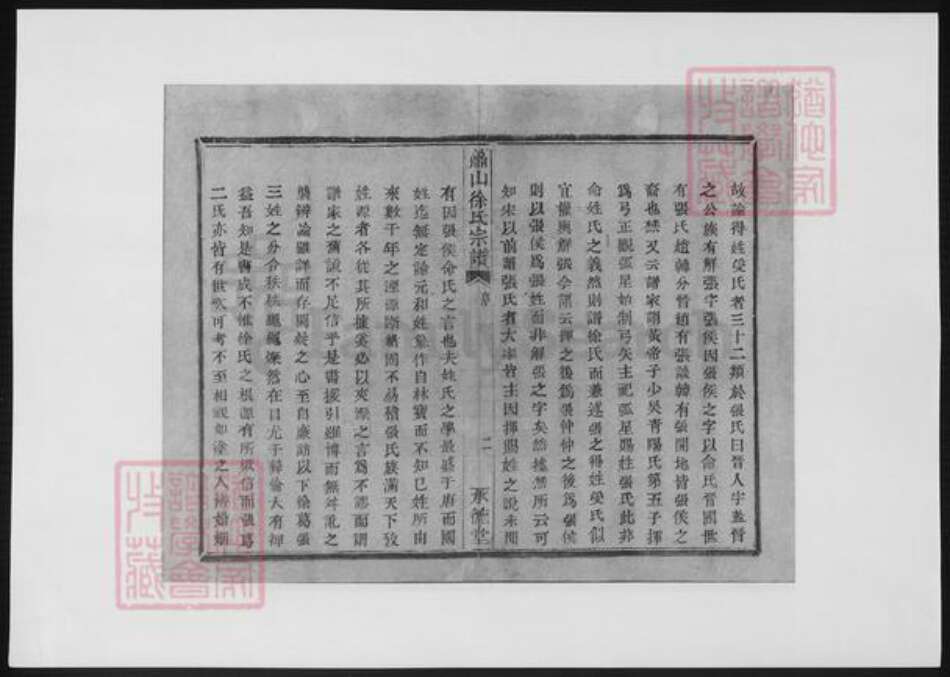 故論得姓受氏者三十二類於張氏曰晉人字蓋晉
之公族有解張字張侯因張侯之字以命氏晉國世
有張氏趙韓分晉趙有張談韓有張開地皆張侯之
裔也然又云譜家謂黃帝子少昊青陽氏第五子揮
為弓正觀弧星始制弓矢主祀弧星賜姓張氏此非
命姓氏之義然則譜徐氏而兼述張之得姓受氏似
宜權輿解張今謂云揮之後為張仲仲之後為張侯
則以張侯為張姓而非解張之字矣諒據鄭所云可
知宋以前譜張氏者大率皆主因揮賜姓之說未聞
蕭山徐氏宗譜
序
二
承德堂
有因張侯命氏之言也夫姓氏之學最盛于唐而國
姓迄無定論元和姓纂作自林寶而不知己姓所由
來數千年之湮源際緒固不易稽張氏族滿天下攷
姓源者各從其所據奚必以夾漈之言為不謬而謂
譜家之舊說不足信乎是書援引雖博而無淆亂之
弊辨論雖詳而存闕疑之心至自廉訪以下徐葛張
三姓之分合秩秩繩繩燦然在目尤于彝倫大有裨
益吾知是書成不惟徐氏之根源有所徵信而張葛
二氏亦皆有世次可考不至相視如塗之人將婚姻